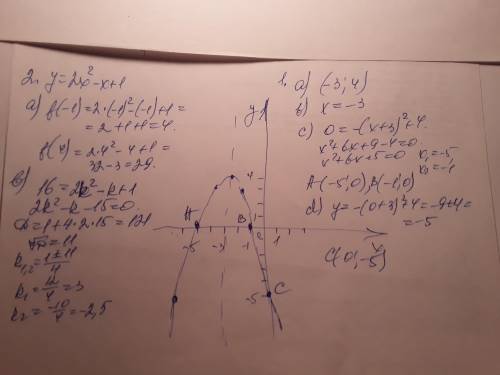 2. y=2x²-x+1
a) f(-1)=2·(-1)²-(-1)+1=
=2+1+1=4.
f(4)=2·4²-4+1=
32-3=29.
b) 16=2k²-k+1
2k²-k-15=0.
D=1+4·2·15=121
√D=11
k₁,₂=1±11/4
k₁=12/4=3
k₂=-10/4=-2,5
y
4
A
B
1
-5
-1
1
-5
C
1. a) (-3; 4)
b) x=-3
c) 0=-(x+3)²+4.
x²+6x+9-4=0.
x²+6x+5=0 x₁=-5,
x₂=-1
A(-5;0), B(-1;0)
d) y=-(0+3)²+4=-9+4=
=-5
C(0;-5)